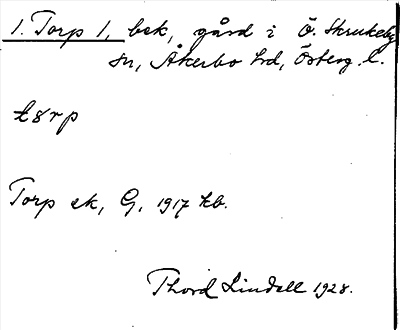 1. Torp 1, bek, gård i Ö. Skrukeby
sn, Åkerbo hd, Österg. l.
tɘrp
Torp ek, G, 1917 kb.
Thord Lindell 1928.